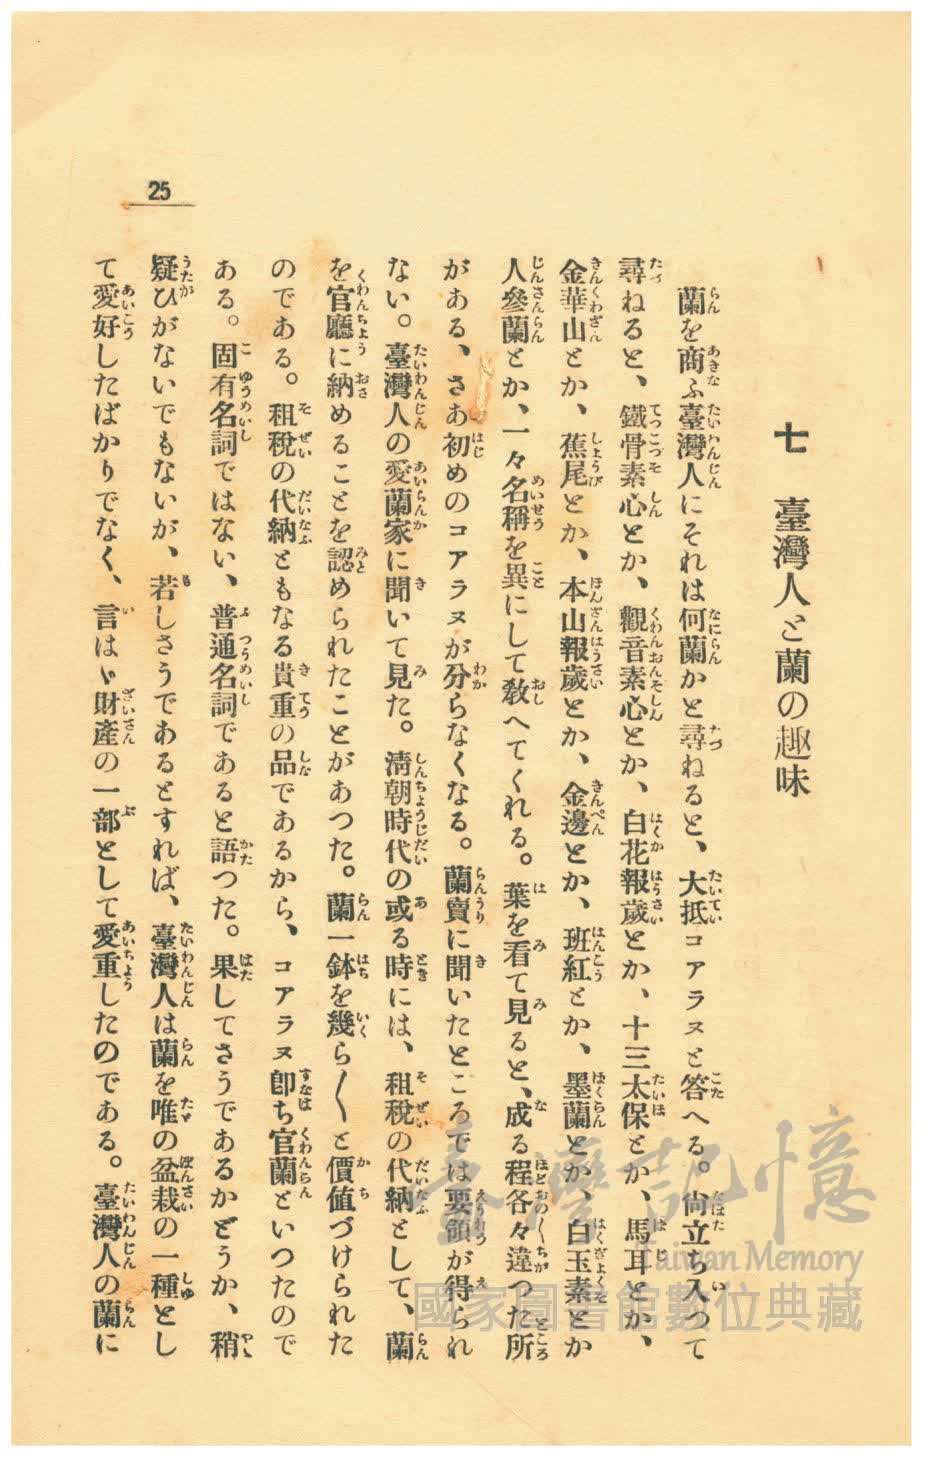 七　臺灣人と蘭の趣味
蘭を商ふ臺灣人にそれは何蘭かと尋ねると、大抵コアラヌと答へる。尙立ち入つて
尋ねると、鐵骨素心とか、觀音素心とか、白花報歲とか、十三太保とか、馬耳とか、
金華山とか、蕉尾とか、本山報歲とか、金邊とか、班紅とか、墨蘭とか、白玉素とか
人參蘭とか、一々名稱を異にして敎へてくれる。葉を看て見ると、成る程各々違つた所
がある、さあ初めのコアラヌが分らなくなる。蘭賣に聞いたところでは要領が得られ
ない。臺灣人の愛蘭家に聞いて見た。淸朝時代の或る時には、租稅の代納として、蘭
を官廳に納めることを認められたことがあつた。蘭一鉢を幾ら〳〵と價値づけられた
のである。租稅の代納ともなる貴重の品であるから、コアラヌ卽ち官蘭といつたので
ある。固有名詞ではない、普通名詞であると語つた。果してさうであるかどうか、稍
疑ひがないでもないが、若しさうであるとすれば、臺灣人は蘭を唯の盆栽の一種とし
て愛好したばかりでなく、言はゞ財產の一部として愛重したのである。臺灣人の蘭に
25
臺灣記憶
Taiwan Memory
國家圖書館數位典藏